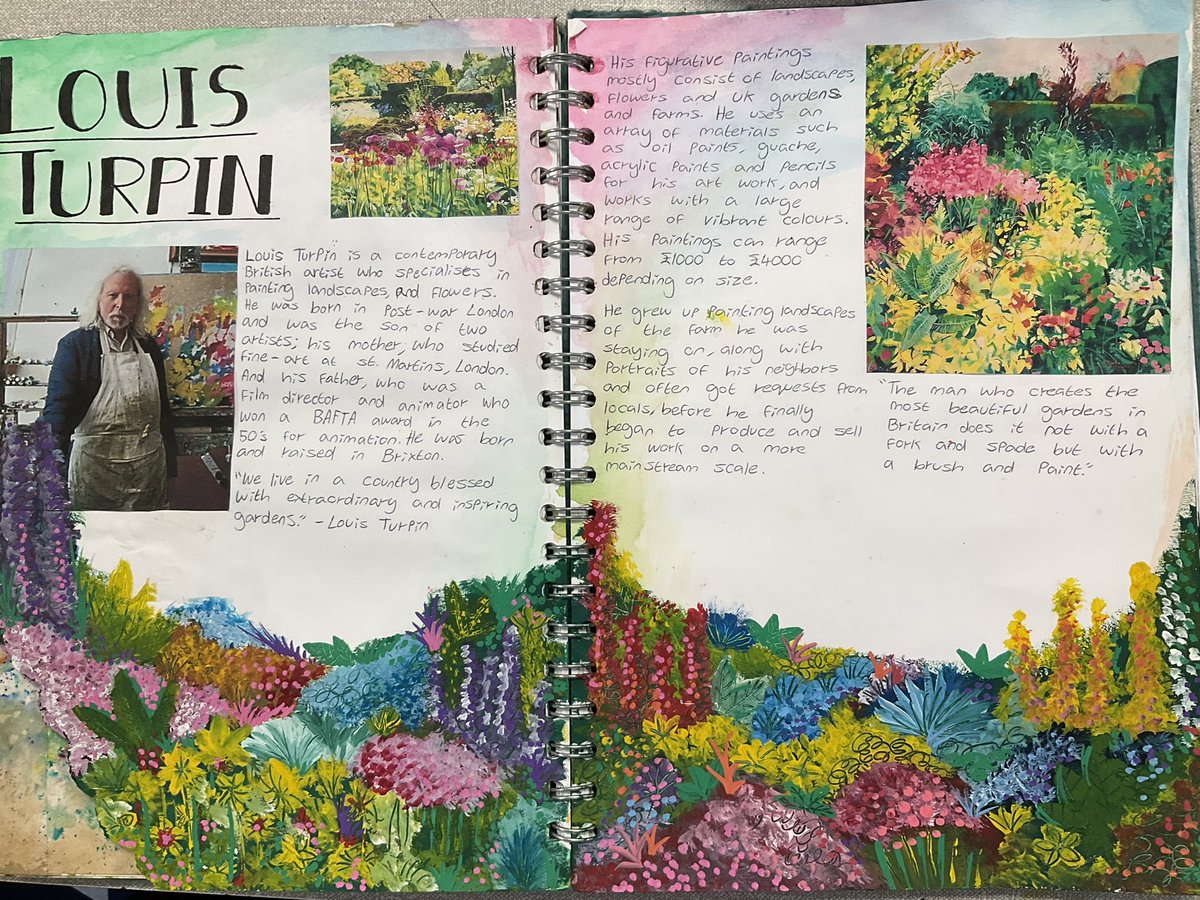 LOUIS
TURPIN
Louis Turpin is a contemporary
British artist who specialises in
painting landscapes, and flowers.
He was born in Post-war London
and was the son of two
artists; his mother, who studied
fine-art at St. Martins, London.
And his father, who was a
film director and animator who
won a BAFTA award in the
50's for animation. He was born
and raised in Brixton.
"We live in a country blessed
with extraordinary and inspiring
gardens." - Louis Turpin
His figurative paintings
mostly consist of landscapes,
flowers and UK gardens
and farms. He uses an
array of materials such
as oil paints, guache,
acrylic paints and pencils
for his art work, and
works with a large
range of vibrant colours.
His paintings can range
from £1000 to £4000
depending on size.
He grew up painting landscapes
of the farm he was
staying on, along with
portraits of his neighbors
and often got requests from
locals, before he finally
began to produce and sell
his work on a more
mainstream scale.
"The man who creates the
most beautiful gardens in
Britain does it not with a
fork and spade but with
a brush and paint."